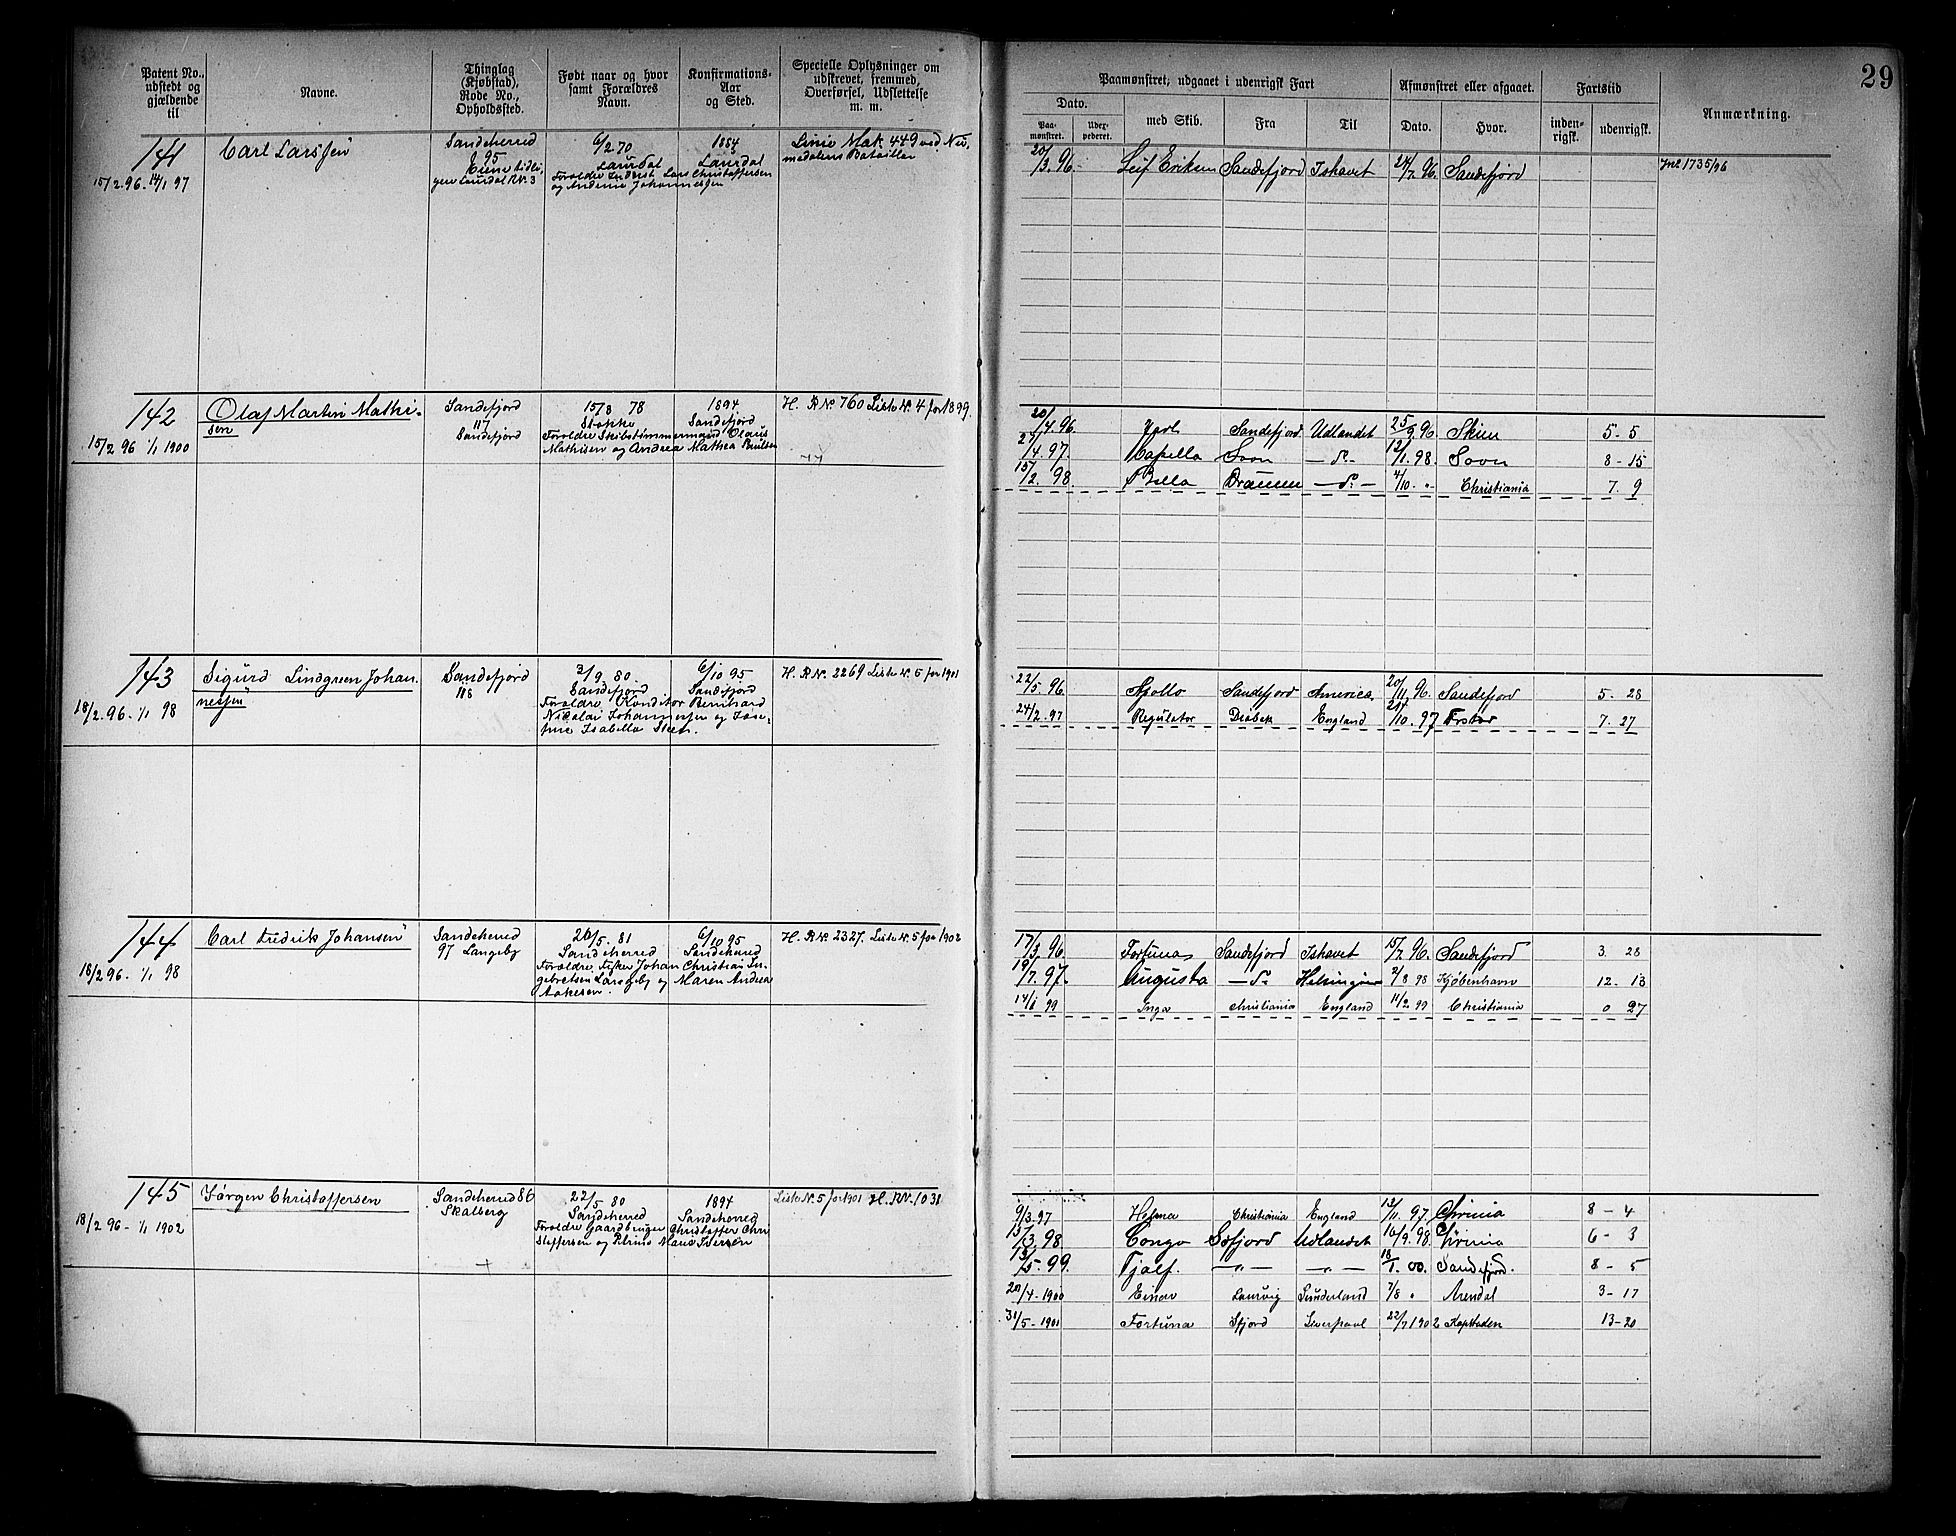 29
Patent No.,
udstedt og
gjældende
til
Navne.
Thinglag
(Kjøbstad),
Rode No.,
Opholdssted.
Født naar og hvor
samt Forældres
Navn.
Konfirmations-
Aar
og Sted.
Specielle Oplysninger om
udskrevet, fremmed,
Overførsel, Udslettelse
m. m.
Paamønstret, udgaaet i udenrigsk Fart
Dato.
Paa-
mønstret.
Udex-
pederet.
med Skib.
Fra
Til
Afmønstret eller afgaaet.
Dato.
Hvor.
Fartstid
inden-
rigsk.
udenrigsk.
Anmærkning.
141
15/2.96. 14/1 97
Carl Larssen
Sandeherred
95
6/2 70
Laurdal
Forældre Lars Christoffersen
og Johannesen
1884
Laurdal
Linie Mak. 449 ved
medalens Bataillon
20/3.96. Leif Eriksen Sandefjord Ishavet 24/7.96. Sandefjord Jnl 1735/96
142
15/2 96 1/1 1900
Olaf Martin Mathi-
sen
Sandefjord
117
Sandefjord
15/8 78
Stokke
Forældre Skibstømmermand Olaus
Mathisen og Andrea Mathea Paulsen
1894
Sandefjord
H. R No. 760 Liste No. 4 for 1899.
20/4.96. Jarl Sandefjord Udlandet 25/9.96 Skien 5-5
27/4.97. Capella Soon -do- 12/1.98. Soon 8-15
15/2.98. Bella Drammen -do- 4/10. " Christiania 7.9
143
18/2.96. 1/1 98
Sigurd Lindgreen Johan-
nessen
Sandefjord
118
3/9.80.
Sandefjord
Forældre Konditor Bernhard
Nikolai Johannessen og Jose-
fine Isabella
6/10 95
Sandefjord
H. R No. 2269 Liste No. 5 for 1901
22/5.96. Apollo Sandefjord America 20/11.96. Sandefjord 5-28
24/2.97 Regulator Drøbak England 21/10.97 7-27
144
18/2 96. 1/1 98
Carl Fredrik Johansen
Sandeherred
97 Langeby
26/5.81
Sandeherred
Forældre, Fisker Johan Christian In-
gebretsen Langeby og Maren Andrea
Aakesen.
6/10 95
Sandeherred
H. R No. 2327. Liste No. 5 for 1902
17/3.96 Fortuna Sandefjord Ishavet 15/7.96. Sandefjord 3.28
19/7.97. Augusta -do- Helsingør 2/8 98 Kjøbenhavn 12-13
14/1 99 Inga Christiania England 11/2.99 Christiania 0 27
145
18/2 96 - 1/1 1902
Jørgen Christoffersen
Sandeherred 86
Skalberg
22/5 80
Sandeherred
Forældre Gaardbruger Christoffer Chri
stoffersen og Maria Iversen
1894
Sandeherred
Liste No. 5 for 1901 H. R No. 1031
9/3.97 Helma Christiania England 12/11.97. Chrinia 8-4
15/3.98 Congo Sefjord Udlandet 16/9.98. Chrinia 6-3
13/5.99. Tjalf. -"- -"- 18/1.00. Sandefjord. 8-5
20/4-1900 Einar Laurvig Sunderland 7/8 " Arendal 3-17
31/5-1901 Fortuna Sfjord Liverpool 22/7 1902 Kapstaden 13-20